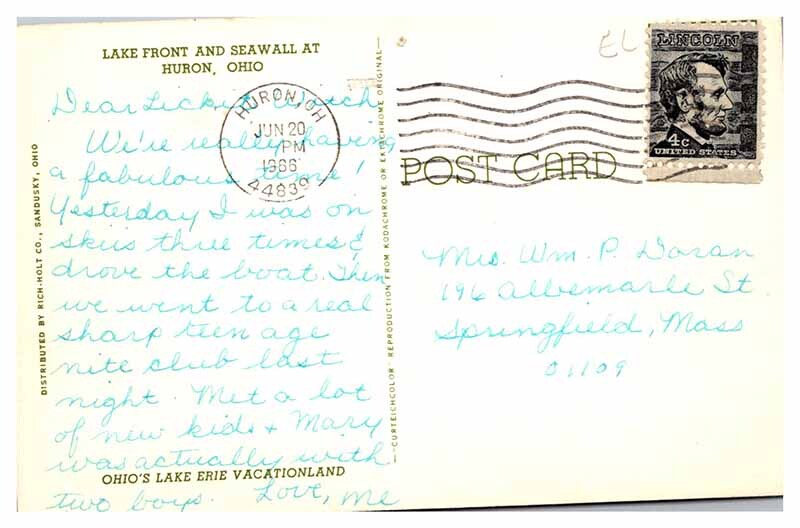 LAKE FRONT AND SEAWALL AT
HURON, OHIO
Dear
We're really having
a fabulous time!
Yesterday I was on
skiis three times &
drove the boat. Then
we went to a real
sharp teen age
nite club last
night. Met a lot
of new kids + Mary
was actually with
two boys. Love, Me
OHIO'S LAKE ERIE VACATIONLAND
DISTRIBUTED BY RICH-HOLT CO., SANDUSKY, OHIO
—CURTEICHCOLOR® REPRODUCTION FROM KODACHROME OR EKTACHROME ORIGINAL—
HURON, OH
JUN 20
PM
1966
44839
EL
LINCOLN
4c
UNITED STATES
POST CARD
Mrs. Wm. P. Doran
196 Albemarle St
Springfield, Mass
01109